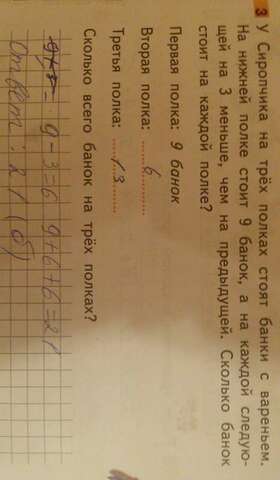 3 У Сиропчика на трёх полках стоят банки с вареньем.
На нижней полке стоит 9 банок, а на каждой следую-
щей на 3 меньше, чем на предыдущей. Сколько банок
стоит на каждой полке?
Первая полка: 9 банок
Вторая полка: 6
Третья полка: 3
Сколько всего банок на трёх полках?
9-3=6 9+6+6=21
Ответ: 21 (б)